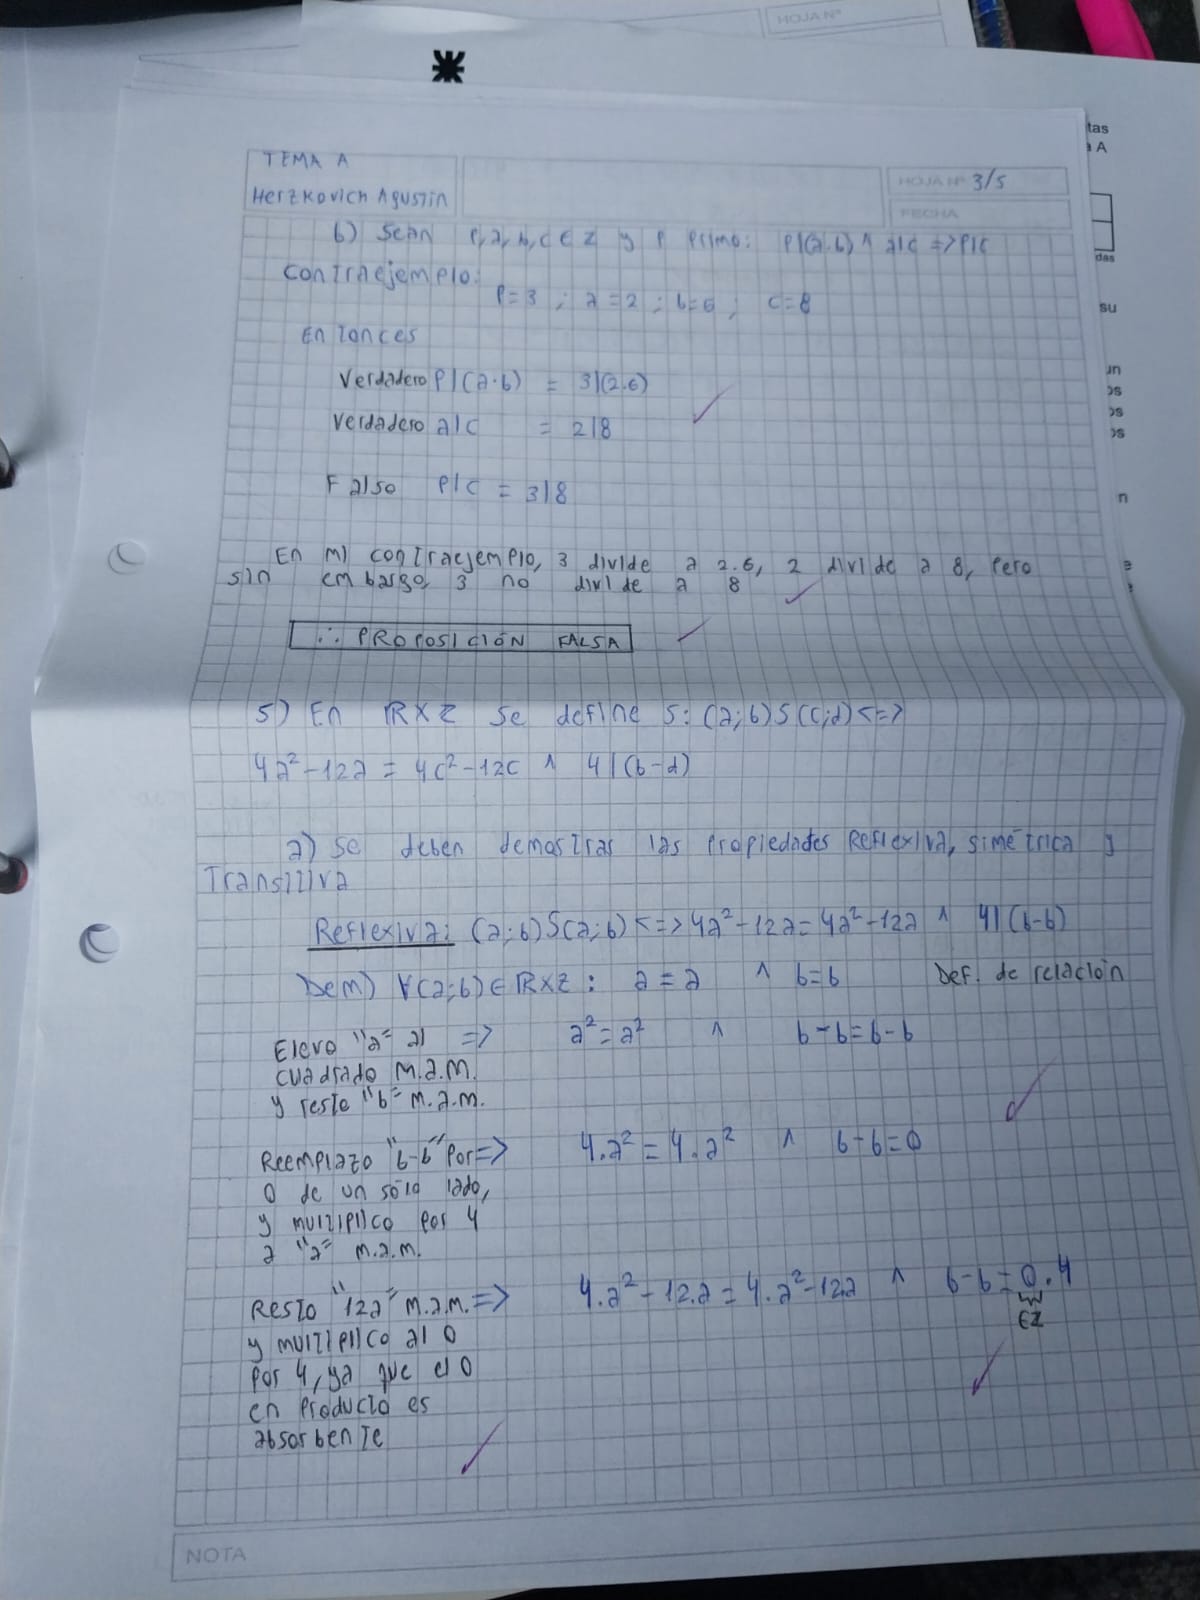 HOJA Nº
tas
A
das
su
un
os
os
os
n
e
TEMA A
Herzkovich Agustin
HOJA Nº 3/5
FECHA
b) Sean p, a, b, c ∈ Z y p primo: p|(a.b) ∧ a|c => p|c
Contraejemplo:
p=3 ; a=2 ; b=6 ; c=8
Entonces
Verdadero p|(a.b) = 3|(2.6)
Verdadero a|c = 2|8
Falso p|c = 3|8
En mi contraejemplo, 3 divide a 2.6, 2 divide a 8, pero
sin embargo, 3 no divide a 8
∴ PROPOSICIÓN FALSA
5) En RxZ se define S: (a;b)S(c;d) <=>
4a²-12a = 4c²-12c ∧ 4|(b-d)
a) Se deben demostrar las propiedades Reflexiva, simétrica y
Transitiva
Reflexiva: (a;b)S(a;b) <=> 4a²-12a=4a²-12a ∧ 4|(b-b)
Dem) ∀(a;b)∈RxZ: a=a ∧ b=b Def. de relación
Elevo "a" al => a²=a² ∧ b-b=b-b
cuadrado m.a.m.
y resto "b" m.a.m.
Reemplazo "b-b" por => 4.a²=4.a² ∧ b-b=0
0 de un sólo lado,
y multiplico por 4
a "a" m.a.m.
Resto "12a" m.a.m. => 4.a²-12.a=4.a²-12a ∧ b-b=0.4
y multiplico al 0 ∈Z
por 4, ya que el 0
en producto es
absorbente
NOTA